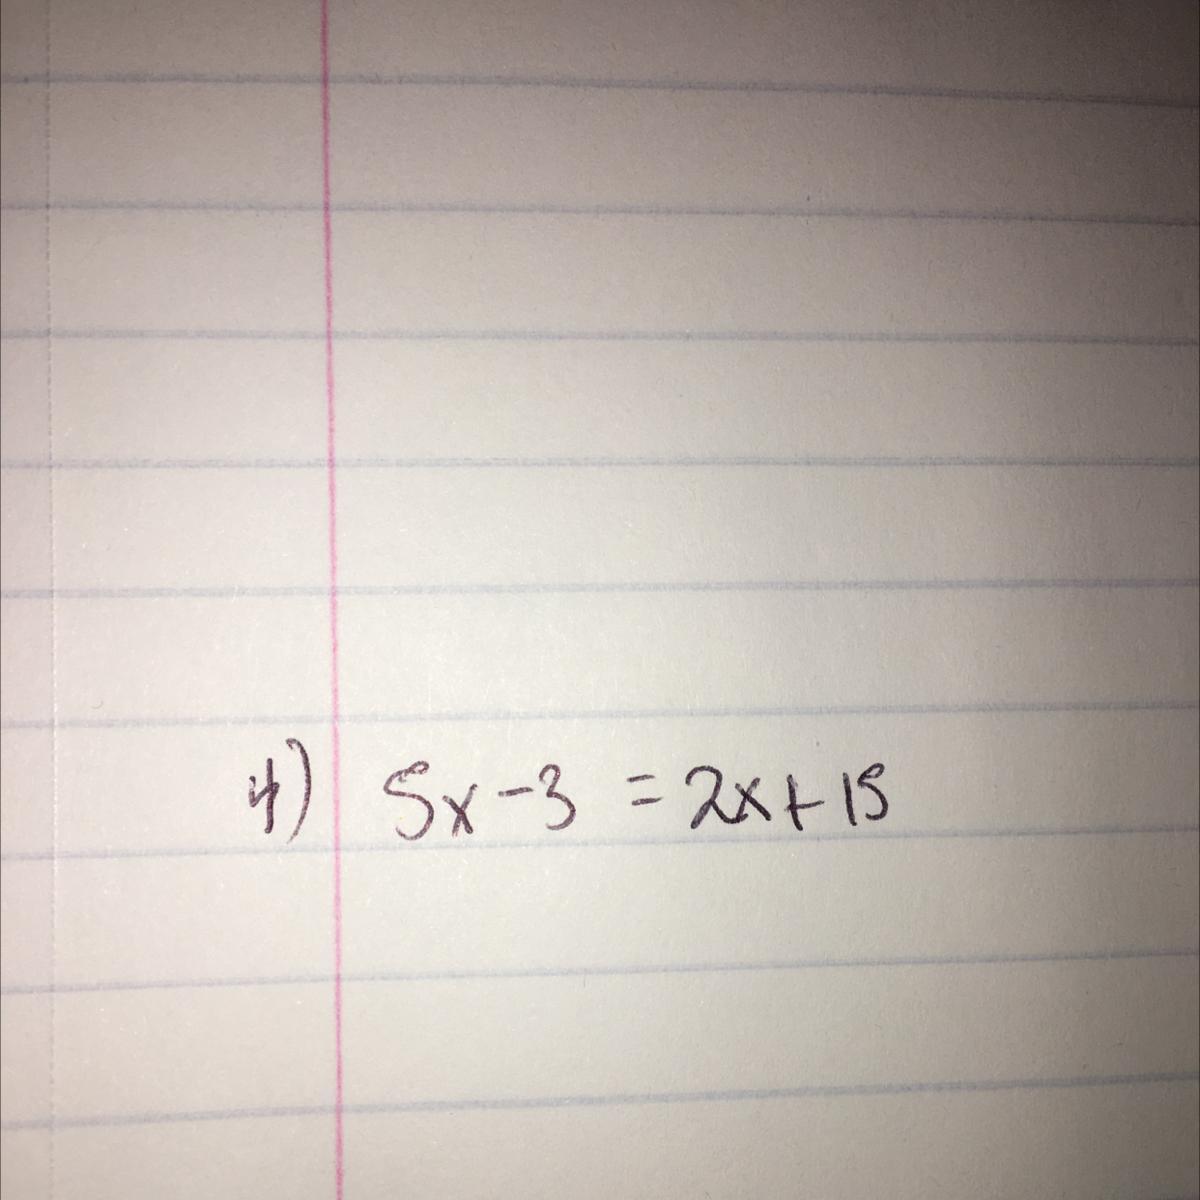 4) 5x-3 = 2x+15